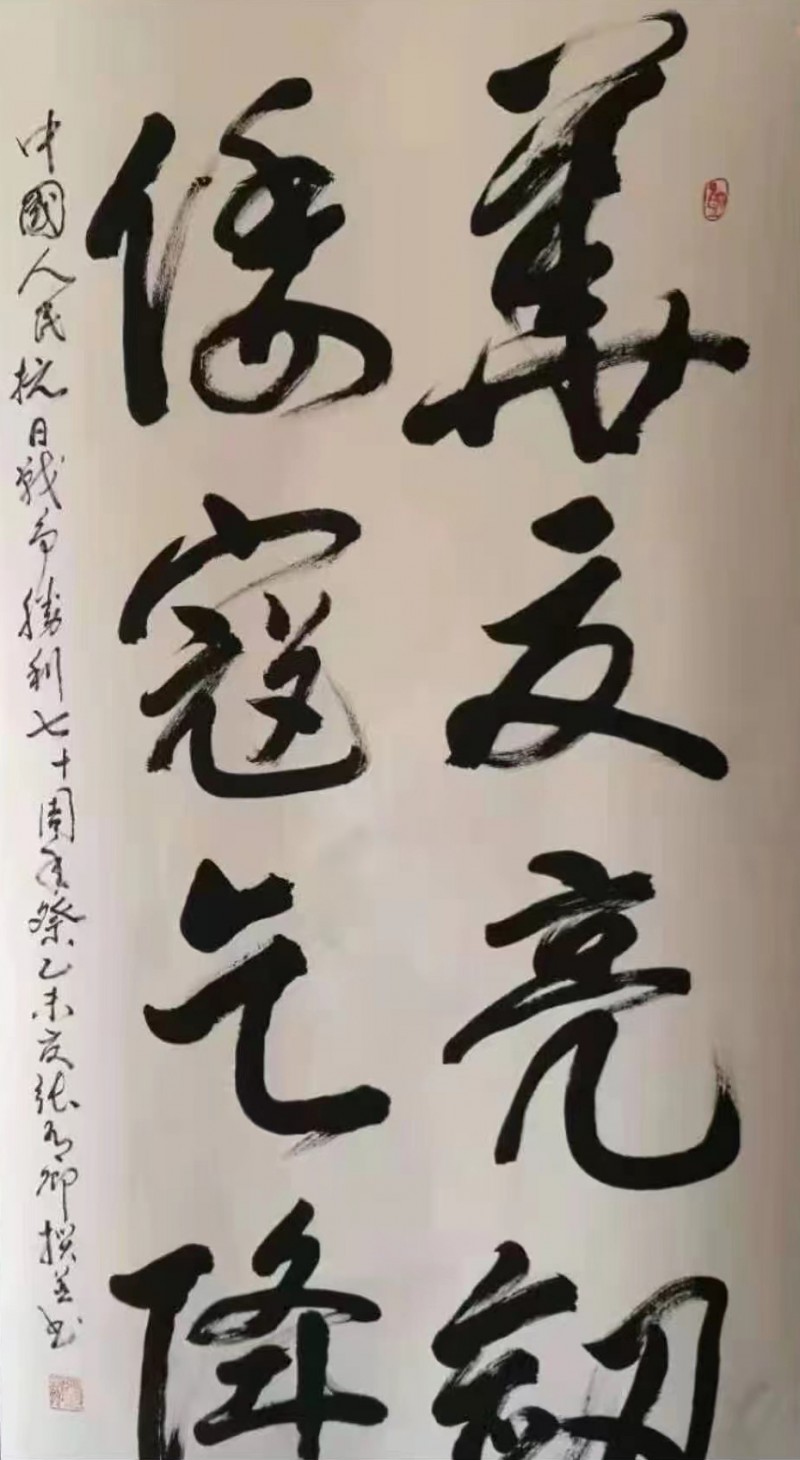 華夏亮劍
倭寇乞降
中國人民抗日戰爭勝利七十周年祭乙未夏張乃卿撰並書